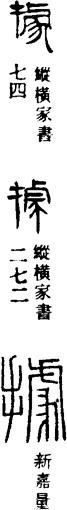 據
縱橫家書
七四
據
縱橫家書
二七二
據
新嘉量